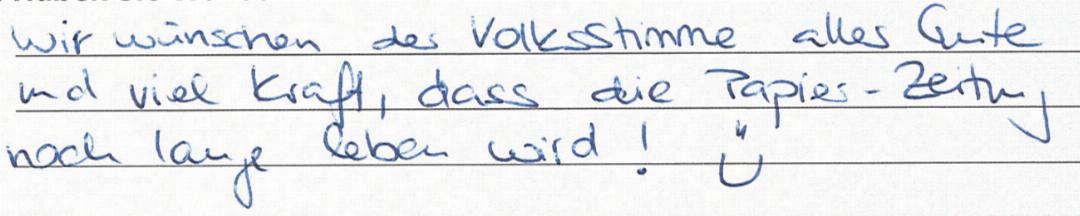 Wir wünschen der Volksstimme alles Gute
und viel Kraft, dass die Papier-Zeitung
noch lange leben wird!